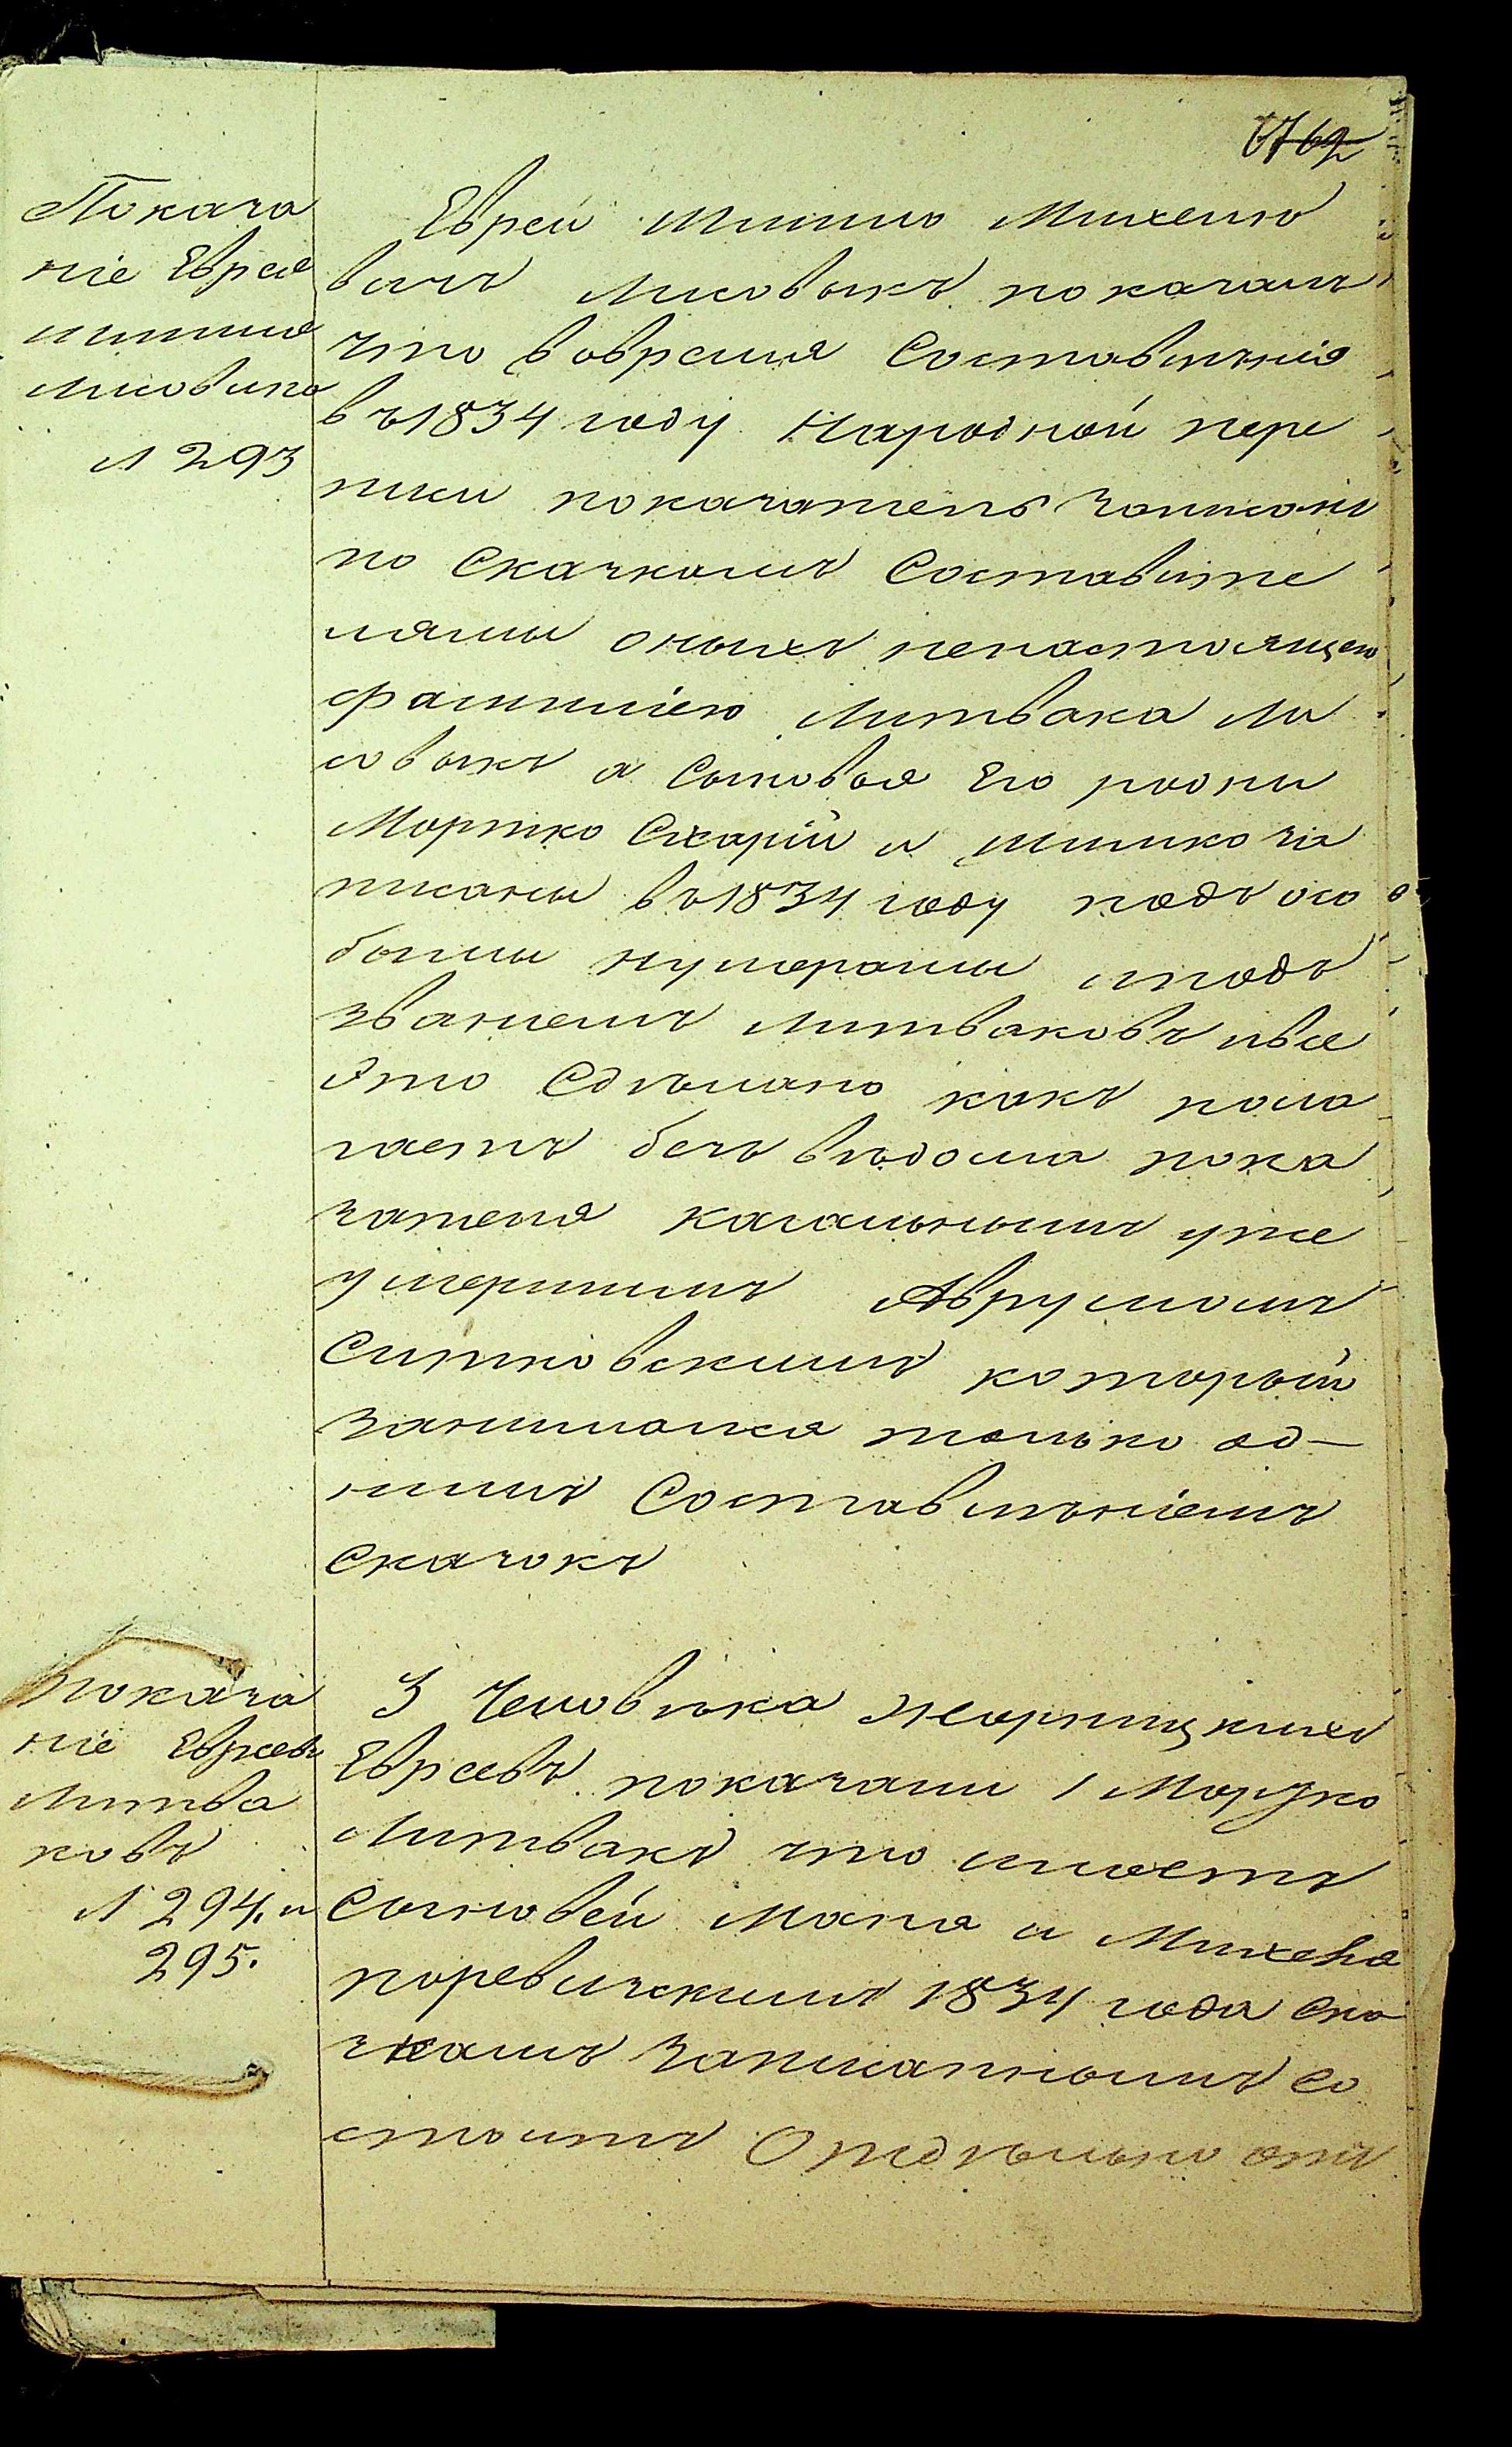 Показа
ніе Еврея
Лисовика
Л 293
Еврей Михелю
вичъ Лисовыкъ показалъ
что вовремя Составленія
въ 1834 году Народной пере
писи показатель записанъ
по Сказкамъ Составите
лями оныхъ ненастоящею
фамиліею Литвака Ли
совыкъ а Сыновья Его родны
Мортко Схарій и Шлико за
писаны въ 1834 году подъ осо
быми нумерами иподъ
званіемъ Литваковъ ивсе
Это Сдѣлано какъ пола
гаетъ безъ вѣдома пока
зателя кагальнымъ уже
умершимъ Аврумомъ
Ситковскимъ который
занимался только од-
нимъ Составленіемъ
Сказокъ
показа
ніе Евреевъ
Литва
ковъ
Л 294. и
295.
3 Человѣка Жорнищкихъ
Евреевъ показали 1 Моржко
Литвакъ что имѣетъ
Сыновей Маня и Михеля
поревизскимъ 1834 года Ска
зкамъ записаннымъ со
стоитъ Отдѣльно отъ